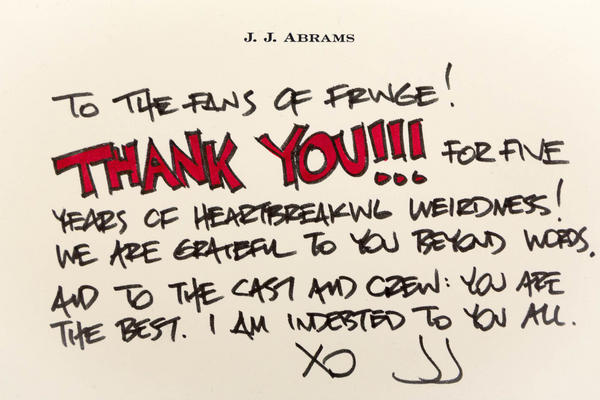 J. J. ABRAMS
TO THE FANS OF FRINGE!
THANK YOU!!! FOR FIVE
YEARS OF HEARTBREAKING WEIRDNESS!
WE ARE GRATEFUL TO YOU BEYOND WORDS.
AND TO THE CAST AND CREW: YOU ARE
THE BEST. I AM INDEBTED TO YOU ALL.
XO JJ